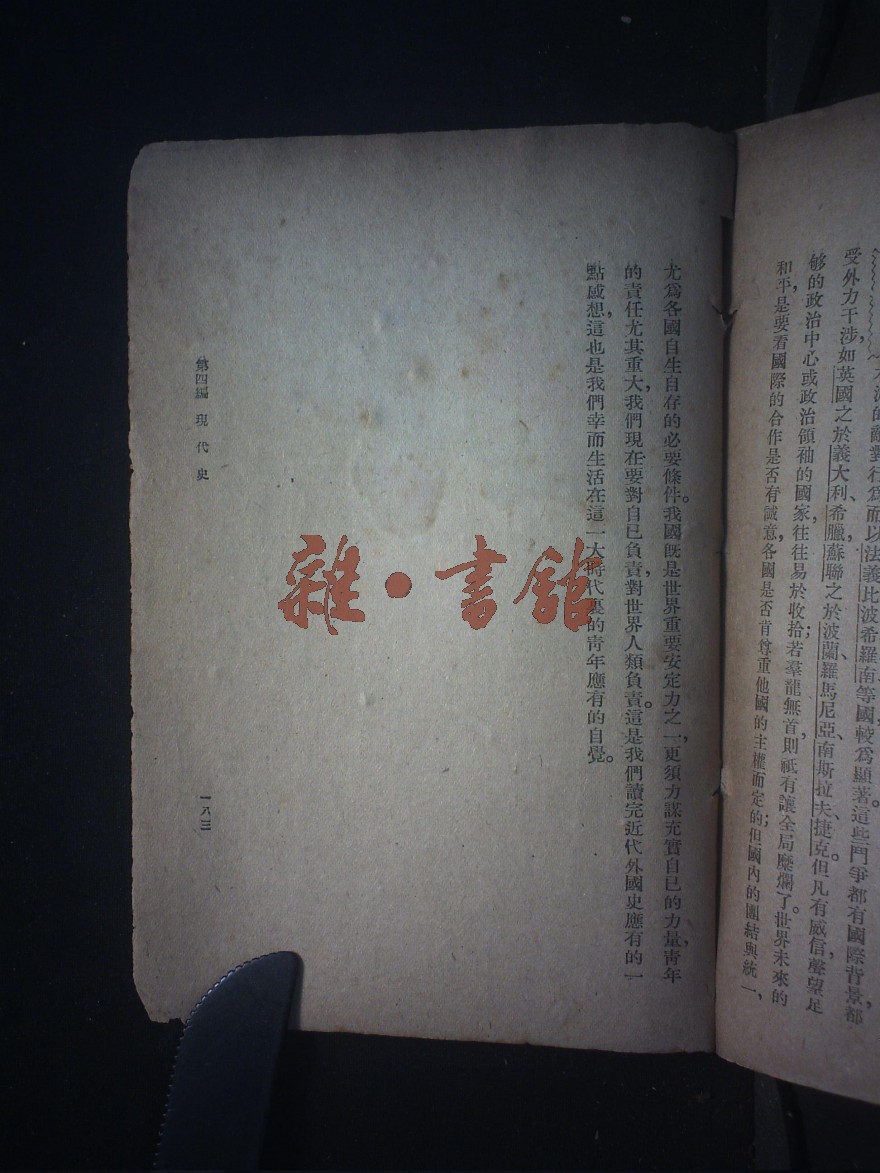 的敵對行爲而以法義比波希羅南等國較爲顯著。這些鬥爭都有國際背景都
受外力干涉,如英國之於義大利、希臘,蘇聯之於波蘭、羅馬尼亞、南斯拉夫、捷克。但凡有威信聲望足
够的政治中心或政治領袖的國家,往往易於收拾;若羣龍無首,則祇有讓全局糜爛了。世界未來的
和平,是要看國際的合作是否有誠意,各國是否肯尊重他國的主權而定的;但國內的團結與統一,
尤爲各國自生自存的必要條件。我國旣是世界重要安定力之一,更須力謀充實自已的力量,靑年
的責任尤其重大,我們現在要對自已負責,對世界人類負責。這是我們讀完近代外國史應有的一
點感想,這也是我們幸而生活在這一大時代裏的靑年應有的自覺。
第四編 現代史
一八三
雜·書館